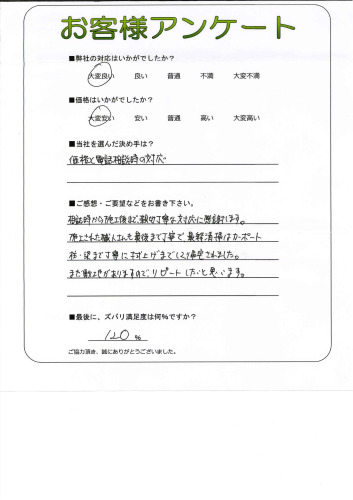 お客様アンケート
■弊社の対応はいかがでしたか？
大変良い 良い 普通 不満 大変不満
■価格はいかがでしたか？
大変安い 安い 普通 高い 大変高い
■当社を選んだ決め手は？
価格と電話相談時の対応
■ご感想・ご要望などをお書き下さい。
相談時から施工後まで、親切丁寧な対応に感謝します。
施工された職人さんも最後まで丁寧で最終清掃はカーポート
柱・梁まで丁寧にふき上げまでして帰宅されました。
まだ別工地がありますので、リピートしたいと思います。
■最後に、ズバリ満足度は何%ですか？
120 %
ご協力頂き、誠にありがとうございました。